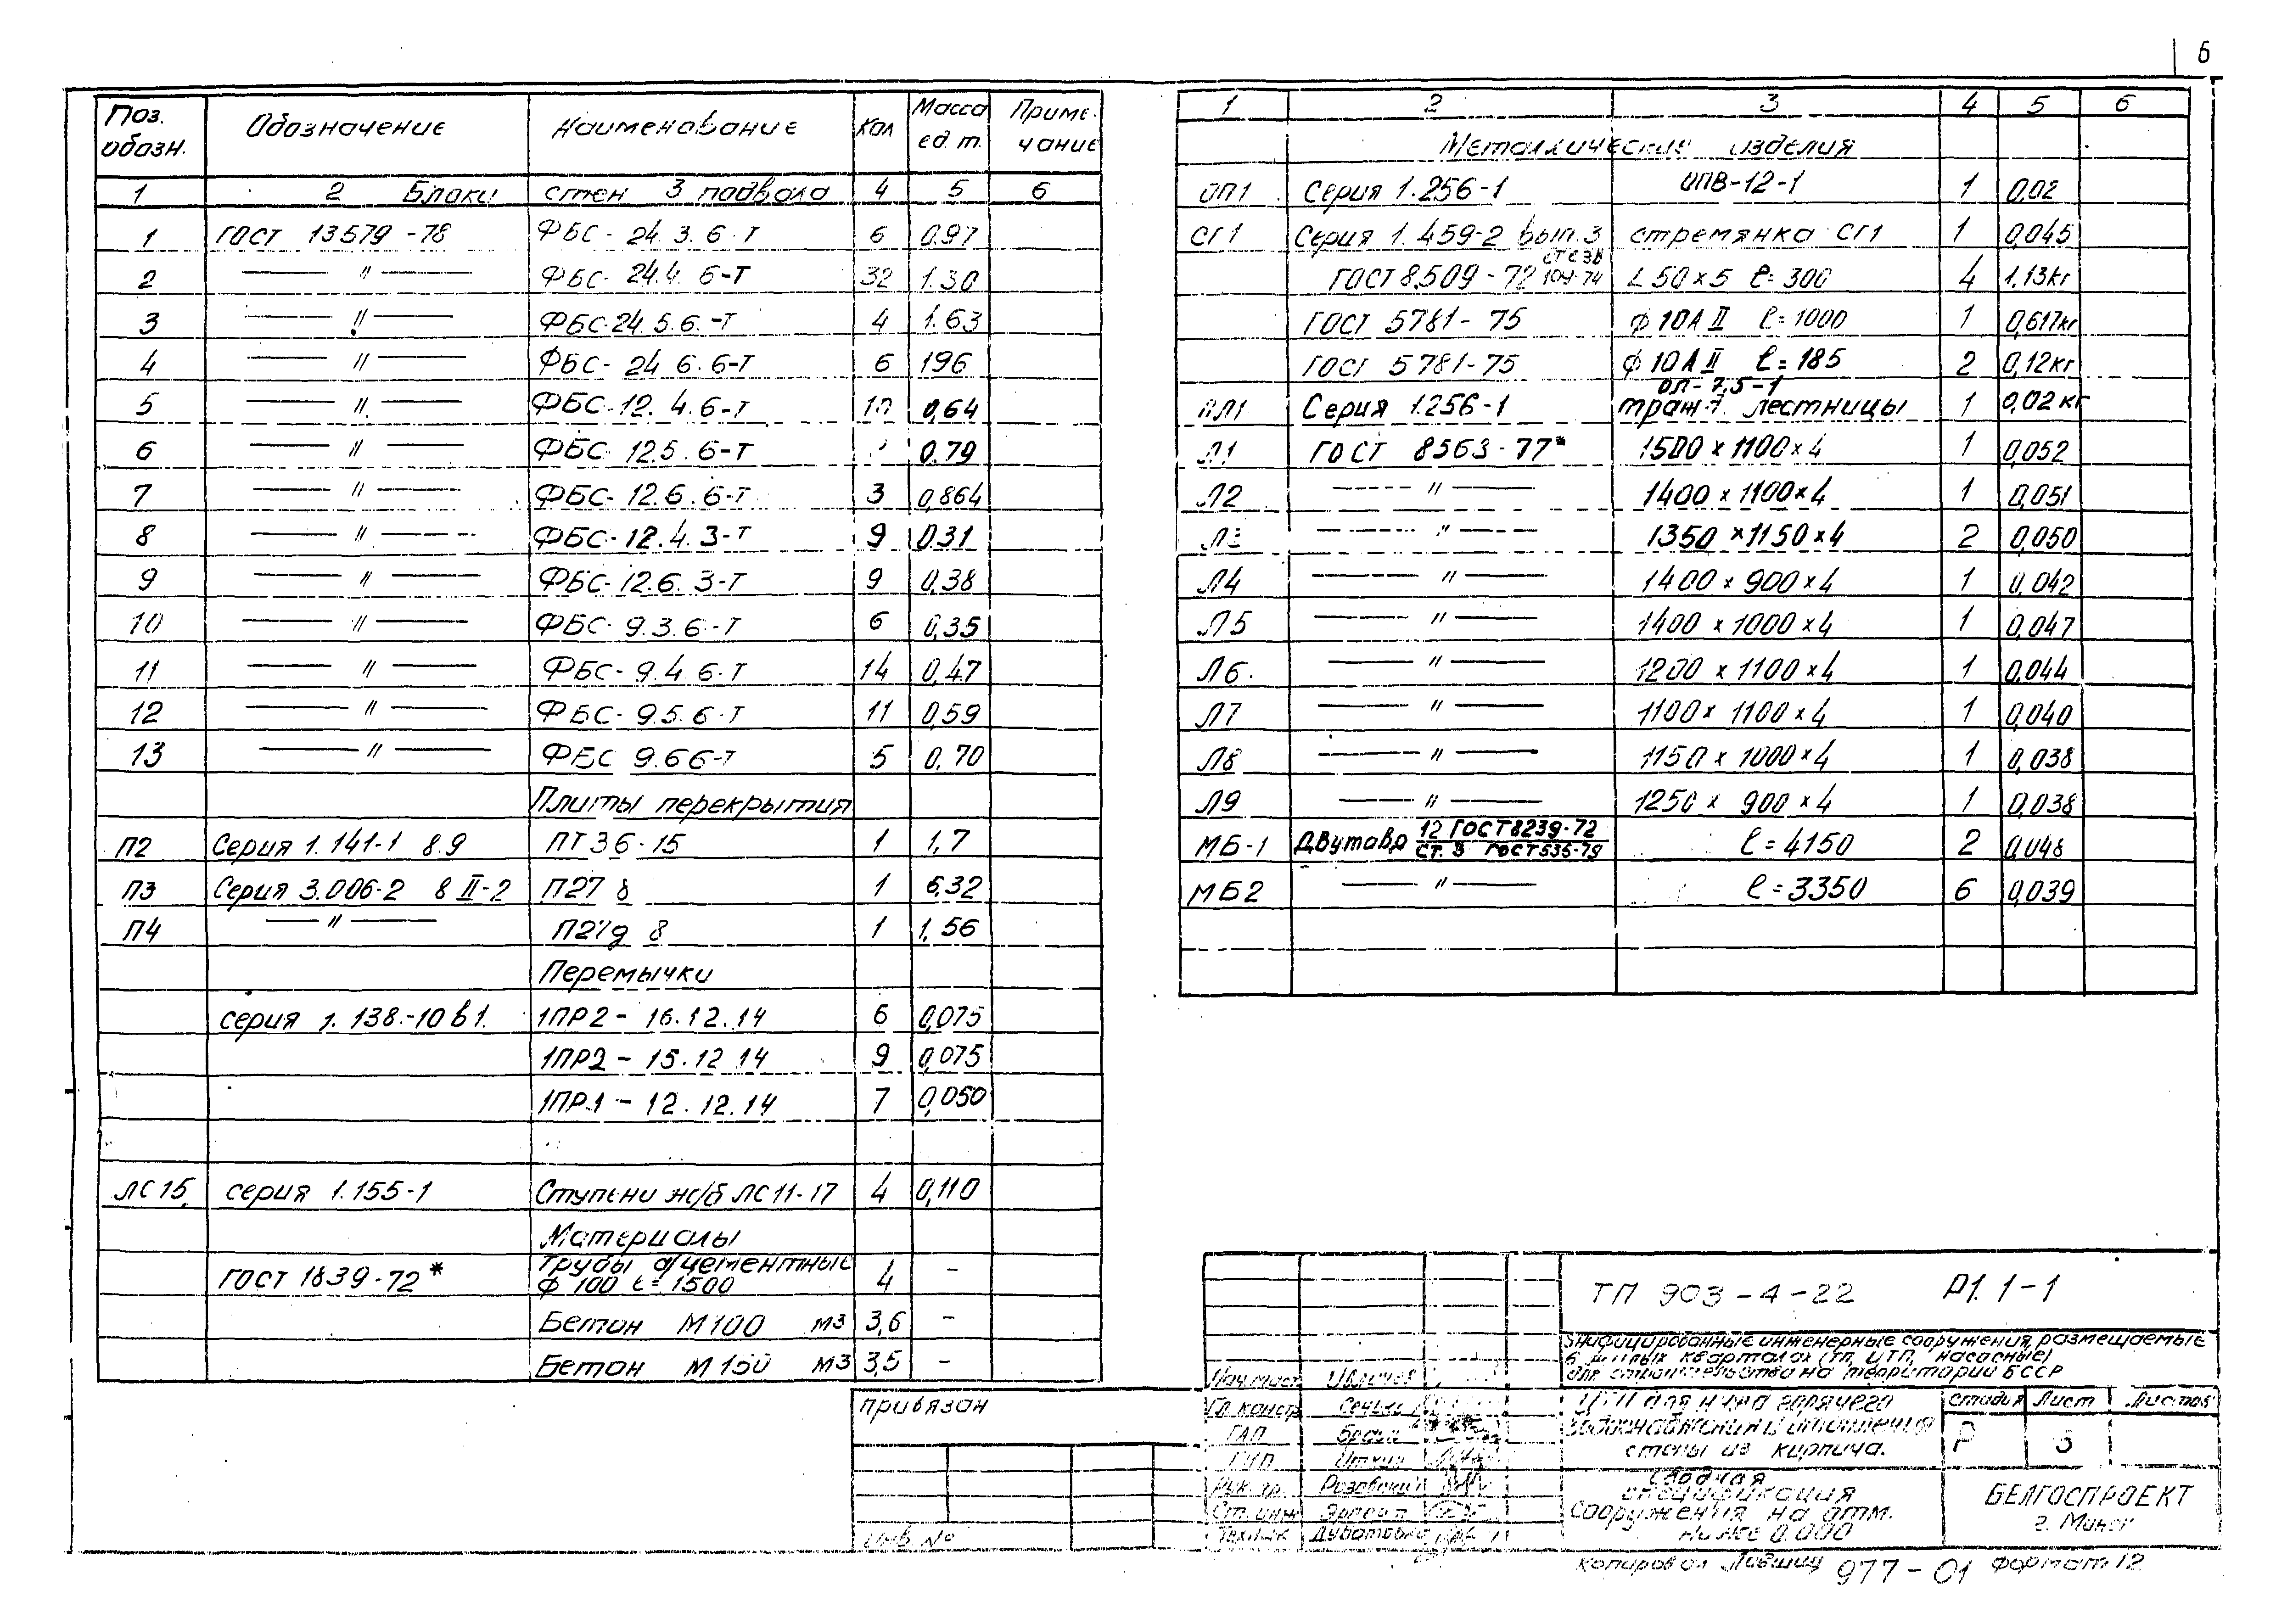 6
Поз. обозн. Обозначение Наименование Кол Масса ед. т. Примечание
1 2 Блоки стен 3 подвала 4 5 6
1 ГОСТ 13579-78 ФБС-24.3.6-Т 6 0.97
2 —"— ФБС-24.4.6-Т 32 1.30
3 —"— ФБС-24.5.6.-Т 4 1.63
4 —"— ФБС-24 6.6-Т 6 196
5 —"— ФБС-12.4.6-Т 0,64
6 —"— ФБС 12.5.6-Т 0.79
7 —"— ФБС-12.6.6-Т 3 0,864
8 —"— ФБС-12.4.3-Т 9 0.31
9 —"— ФБС-12.6.3-Т 9 0,38
10 —"— ФБС-9.3.6-Т 6 0,35
11 —"— ФБС-9.4.6-Т 14 0,47
12 —"— ФБС-9.5.6-Т 11 0,59
13 —"— ФБС 9.66-Т 5 0,70
Плиты перекрытия
П2 Серия 1.141-1 8.9 ПТ36-15 1 1,7
П3 Серия 3.006-2 8 II-2 П27 1
П4 —"— 8 1 1,56
Перемычки
серия 1.138-10 в1. 1ПР2-16.12.14 6 0,075
1ПР2-15.12 14 9 0,075
1ПР1-12.12.14 7 0,050
ЛС15 серия 1.155-1 Ступени ж/б ЛС11-17 4 0,110
Материалы
ГОСТ 1839-72* Трубы а/цементные 4 -
ф 100 ℓ=1500
Бетон М100 м3 3,6 -
Бетон М150 м3 3,5 -
1 2 3 4 5 6
Металлические изделия
ОП1 Серия 1.256-1 ОПВ-12-1 1 0,02
СГ1 Серия 1.459-2 вып.3 стремянка СГ1 1 0,045
ГОСТ 8509-72 L 50×5 ℓ=300 4 1,13кг
ГОСТ 5781-75 ф 10А II ℓ=1000 1 0,617кг
ГОСТ 5781-75 ф 10А II ℓ=185 2 0,12кг
ОЛ-7,5-1
Серия 1.256-1 лестницы 1 0,02кг
Л1 ГОСТ 8563-77* 1500×1100×4 1 0,052
Л2 —"— 1400×1100×4 1 0,051
Л3 —"— 1350×1150×4 2 0,050
Л4 —"— 1400×900×4 1 0,042
Л5 —"— 1400×1000×4 1 0,047
Л6. —"— 1200×1100×4 1 0,044
Л7 —"— 1100×1100×4 1 0,040
Л8 —"— 1150×1000×4 1 0,038
Л9 —"— 1250×900×4 1 0,038
МБ-1 Двутавр 12 ГОСТ8239-72 ℓ=4150 2 0,048
Ст.3 ГОСТ535-79
МБ2 —"— ℓ=3350 6 0,039
ТП 903-4-22 Р1.1-1
Унифицированные инженерные сооружения, размещаемые
в жилых кварталах (ТП, ЦТП, насосные)
для строительства на территории БССР
Нач.маст
Гл. констр
ГАП
ГИП
Рук. гр. Розовский
Ст. инж
Техник
горячего
водоснабжения и отопления
стены из кирпича.
стадия Лист Листов
Р
Сводная
спецификация
сооружения на отм.
ниже 0.000
БЕЛГОСПРОЕКТ
г. Минск
Привязан
Инв. №
копировал 977-01 формат 12